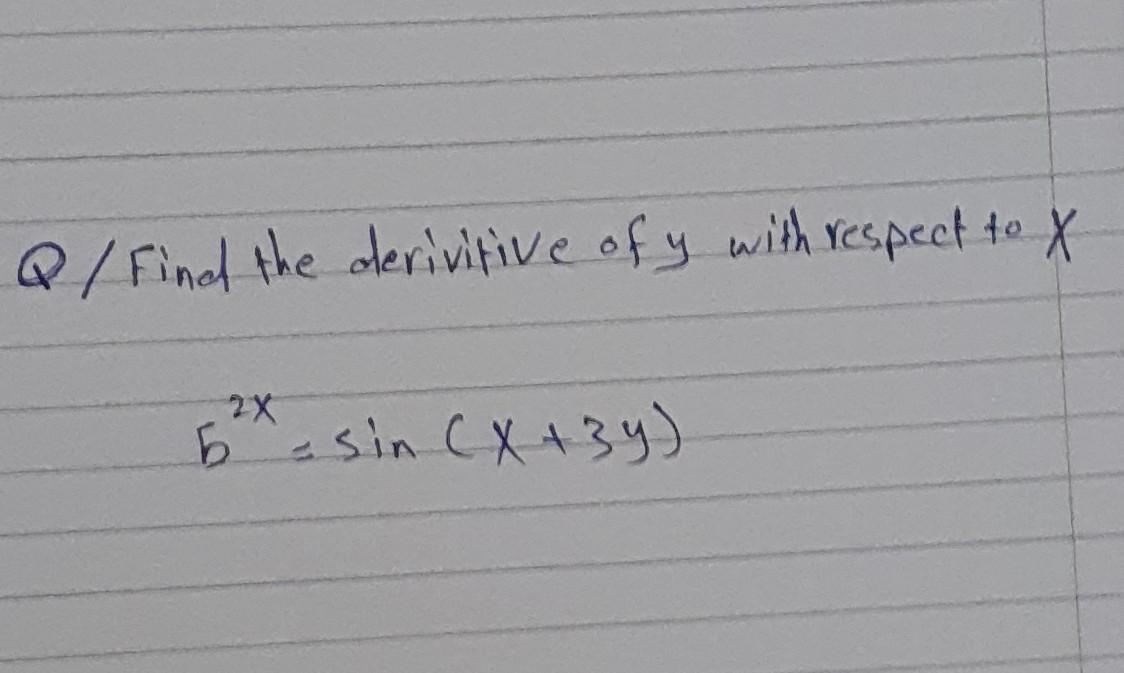 Q/Find the derivitive of y with respect to X
5^2X = sin (X+3y)